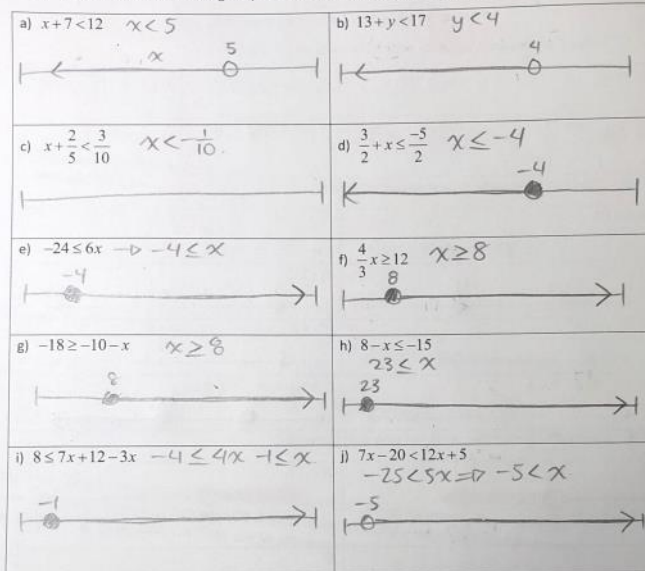 a) x+7<12 x<5
x 5
b) 13+y<17 y<4
4
c) x+2/5<3/10 x<-1/10
d) 3/2+x≤-5/2 x≤-4
-4
e) -24≤6x → -4≤x
-4
f) 4/3x≥12 x≥8
8
g) -18≥-10-x x≥8
8
h) 8-x≤-15
23≤x
23
i) 8≤7x+12-3x -4≤4x -1≤x
-1
j) 7x-20<12x+5
-25<5x⇒ -5<x
-5